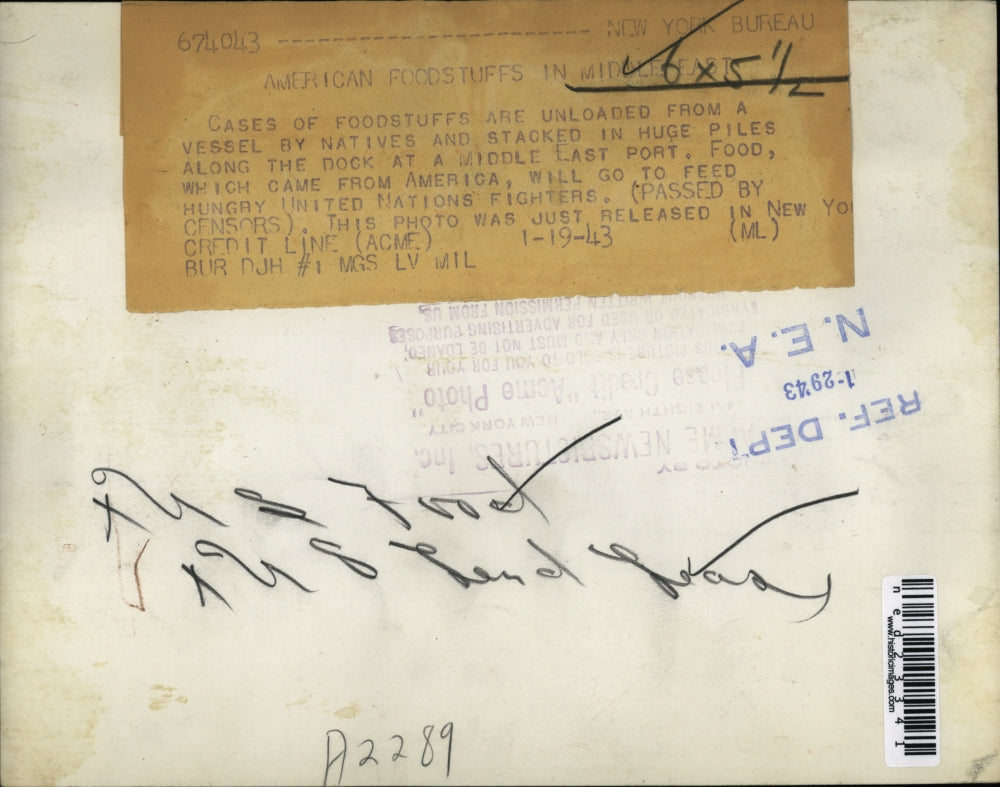 674043 ------------------------------ NEW YORK BUREAU
AMERICAN FOODSTUFFS IN MIDDLE EAST
6 x 5 1/2
CASES OF FOODSTUFFS ARE UNLOADED FROM A
VESSEL BY NATIVES AND STACKED IN HUGE PILES
ALONG THE DOCK AT A MIDDLE EAST PORT. FOOD,
WHICH CAME FROM AMERICA, WILL GO TO FEED
HUNGRY UNITED NATIONS FIGHTERS. (PASSED BY
CENSORS). THIS PHOTO WAS JUST RELEASED IN NEW YO
CREDIT LINE (ACME) 1-19-43 (ML)
BUR DJH #1 MGS LV MIL
PHOTO BY
ACME NEWSPICTURES, Inc.
EIGHTH AVE., NEW YORK CITY
Please Credit "Acme Photo"
THIS PICTURE IS SOLD TO YOU FOR YOUR
PUBLICATION ONLY AND MUST NOT BE LOANED,
SYNDICATED OR USED FOR ADVERTISING PURPOSES
WITHOUT WRITTEN PERMISSION FROM US
REF. DEPT
1-29 43
N.E.A.
Food
Lend Lease
A2289
ned23341
www.historicimages.com